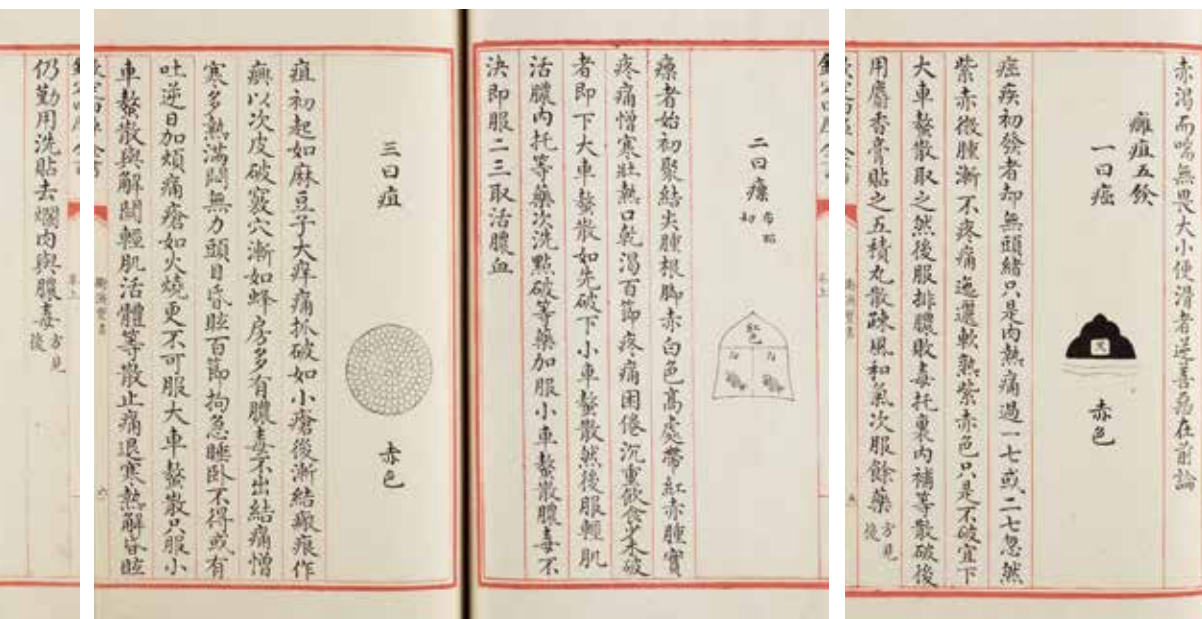 赤渴而喘無畏大小便滑者逆善惡在前論
癰疽五發
一曰癌
赤色
癌疾初發者却無頭緒只是内熱痛過一七或二七忽然
紫赤微腫漸不疼痛迤邐軟熟紫赤色只是不破宜下
大車螯散取之然後服排膿敗毒托裏内補等散破後
用麝香膏貼之五積丸散疎風和氣次服餘藥方見後
二曰瘭布昭切
紅色
瘭者始初聚結尖腫根脚赤白色高處帶紅赤腫實
疼痛憎寒壯熱口乾渴百節疼痛困倦沉重飲食少未破
者即下大車螯散如先破下小車螯散然後服輕肌
活膿内托等藥次洗點破等藥加服小車螯散膿毒不
決即服二三取活膿血
三曰疽
赤色
疽初起如麻豆子大痒痛抓破如小瘡後漸結瘢痕作
以次皮破竅穴漸如蜂房多有膿毒不出結痛憎
寒多熱滿悶無力頭目昏眩百節拘急睡卧不得或有
吐逆日加煩痛瘡如火燒更不可服大車螯散只服小
車螯散與解悶輕肌活體等散止痛退寒熱解昏眩
仍勤用洗貼去爛肉與膿毒方見後